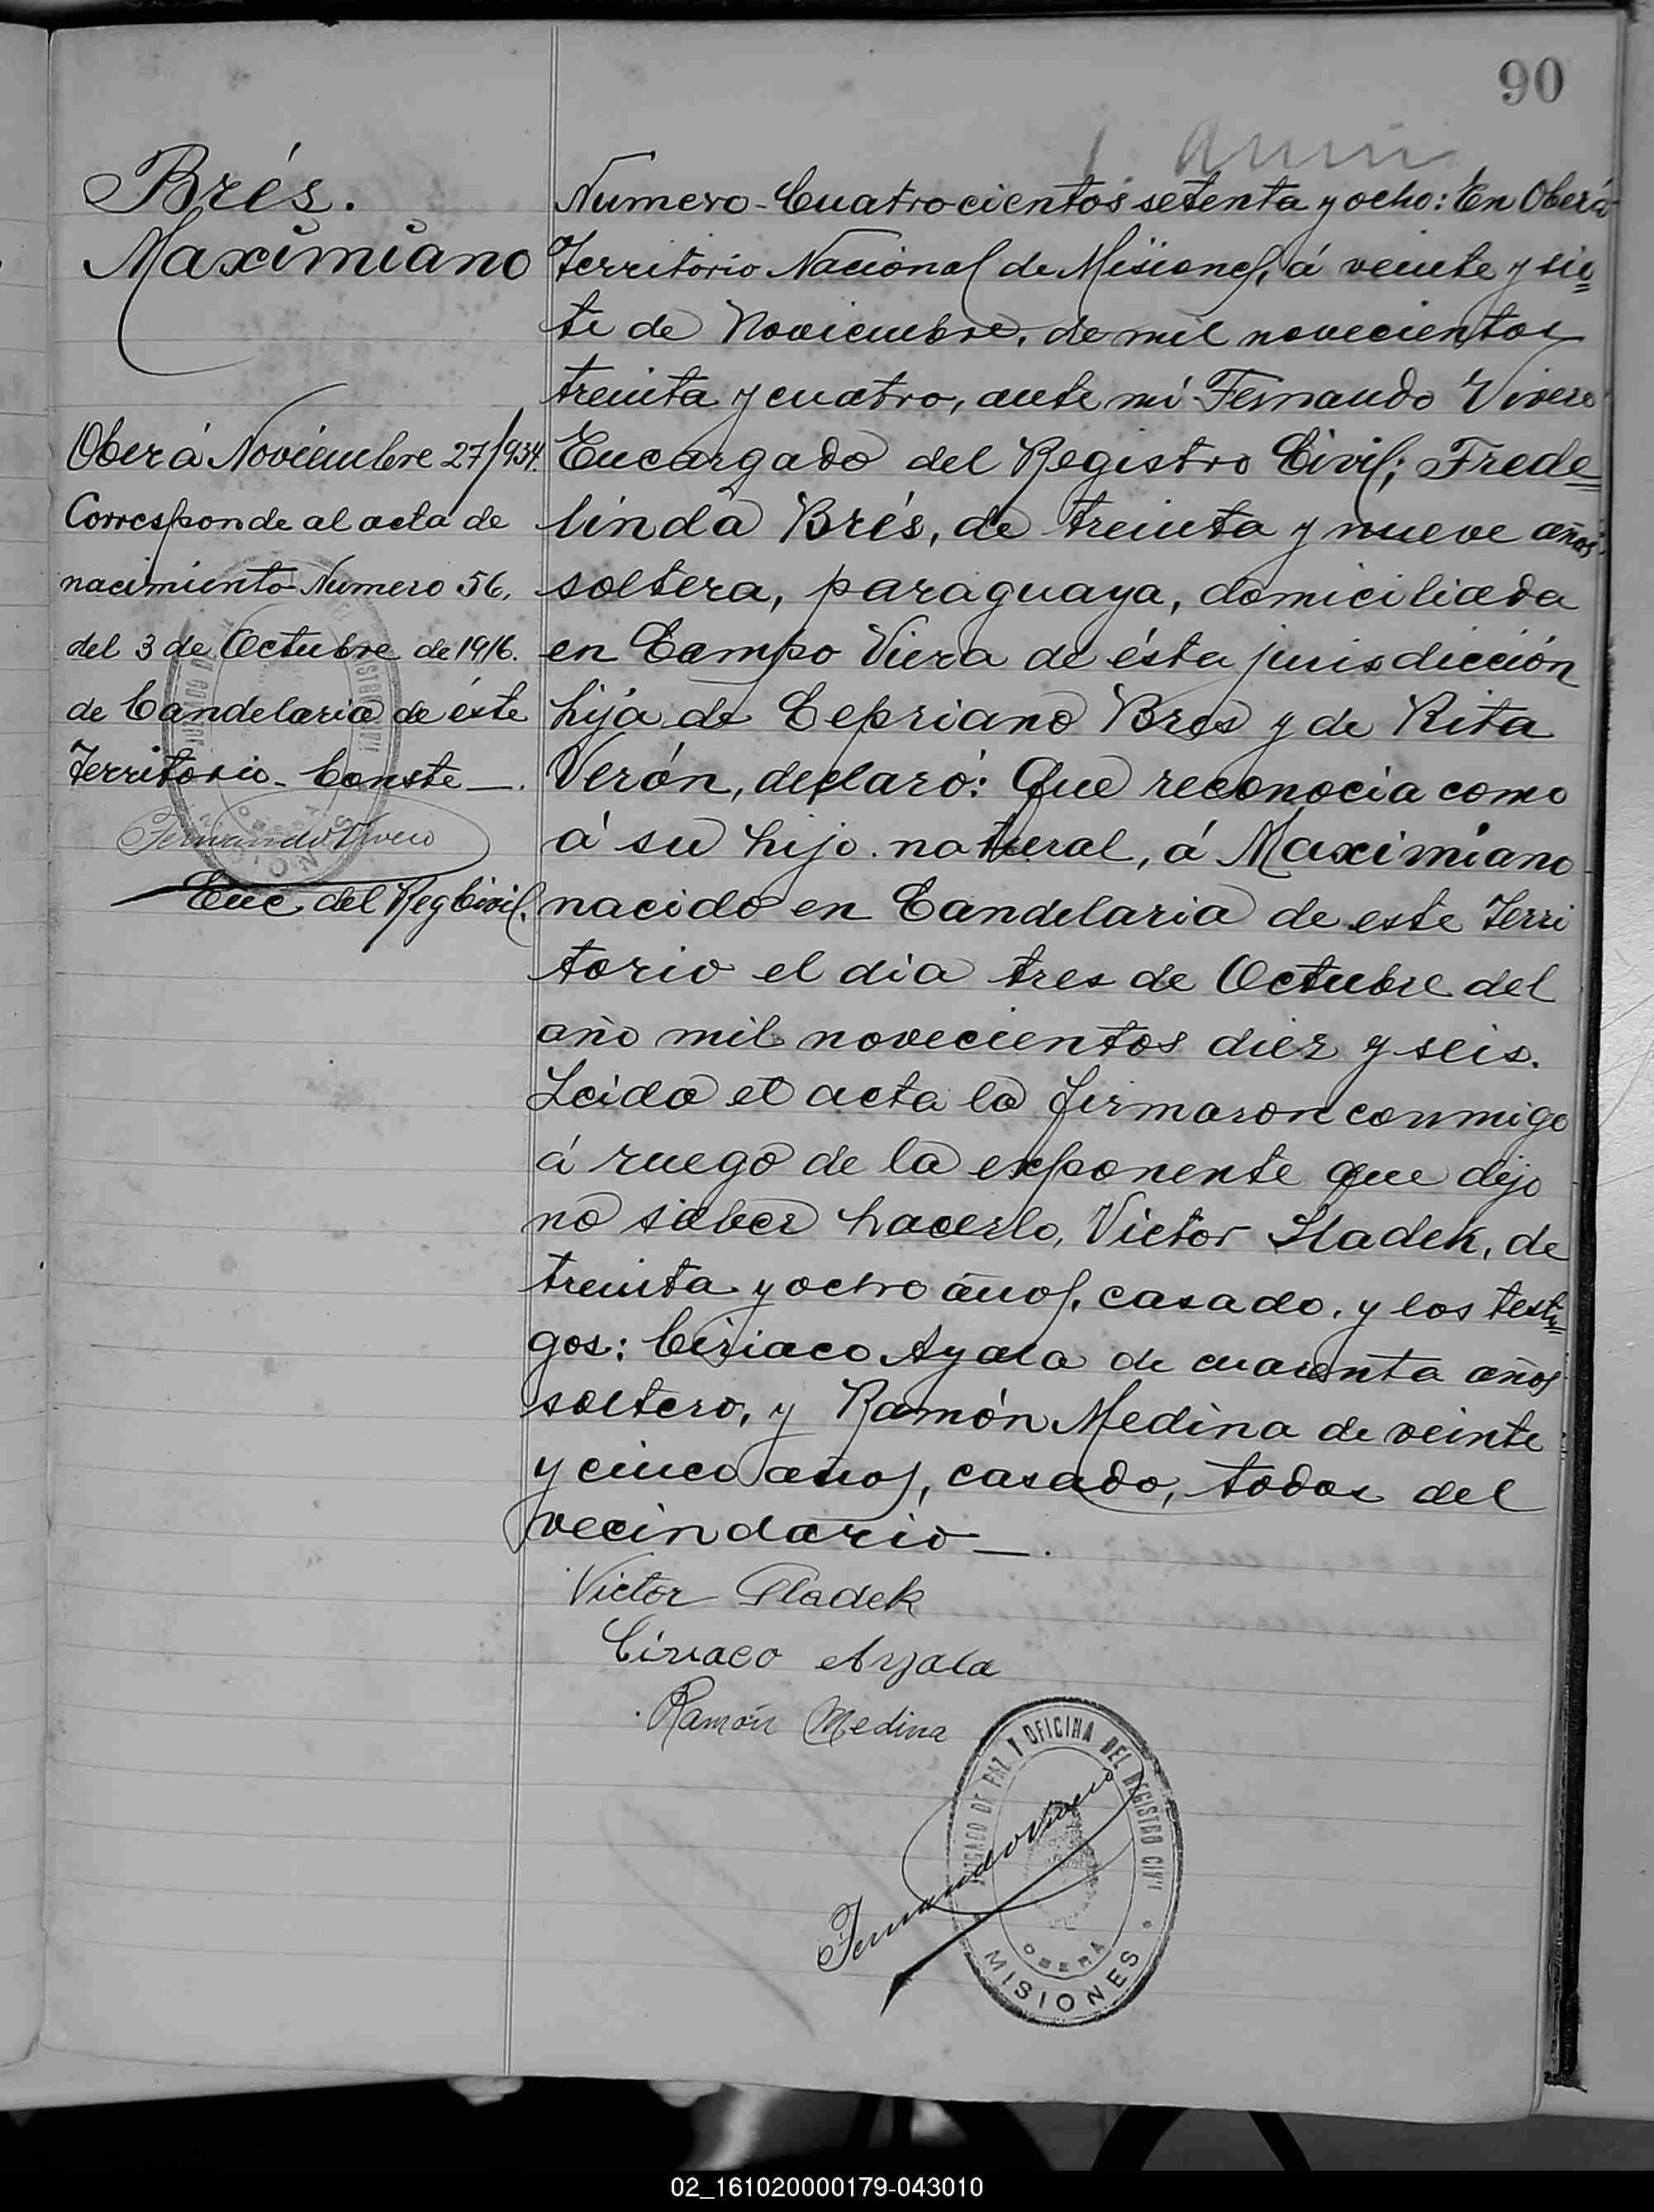 90
Brés.
Maximiano
Oberá Noviembre 27/934.
Corresponde al acta de
nacimiento Numero 56.
del 3 de Octubre de 1916.
de Candelaria de éste
Territorio_ Conste_.
Fernando Vivero
Enc. del Reg Civil.
Numero_Cuatrocientos setenta y ocho: En Oberá
Territorio Nacional de Misiones, á veinte y sie=
te de Noviembre, de mil novecientos
treinta y cuatro, ante mi Fernando Vivero
Encargado del Registro Civil; Frede=
linda Brés, de treinta y nueve años
soltera, paraguaya, domiciliada
en Campo Viera de ésta jurisdicción
hija de Cepriano Bres y de Rita
Verón, declaró: Que reconocia como
á su hijo natural, á Maximiano
nacido en Candelaria de este Terri
torio el dia tres de Octubre del
año mil novecientos diez y seis.
Leida el acta la firmaron conmigo
á ruego de la exponente que dijo
no saber hacerlo, Victor Sladek, de
treinta y ocho años, casado, y los testi=
gos: Ciriaco Ayala de cuarenta años
soltero, y Ramón Medina de veinte
y cinco años, casado, todos del
vecindario_.
Victor Sladek
Ciriaco Ayala
Ramón Medina
Fernando Vivero
JUZGADO DE PAZ Y OFICINA DEL REGISTRO CIVIL
OBERA
MISIONES
02_161020000179-043010